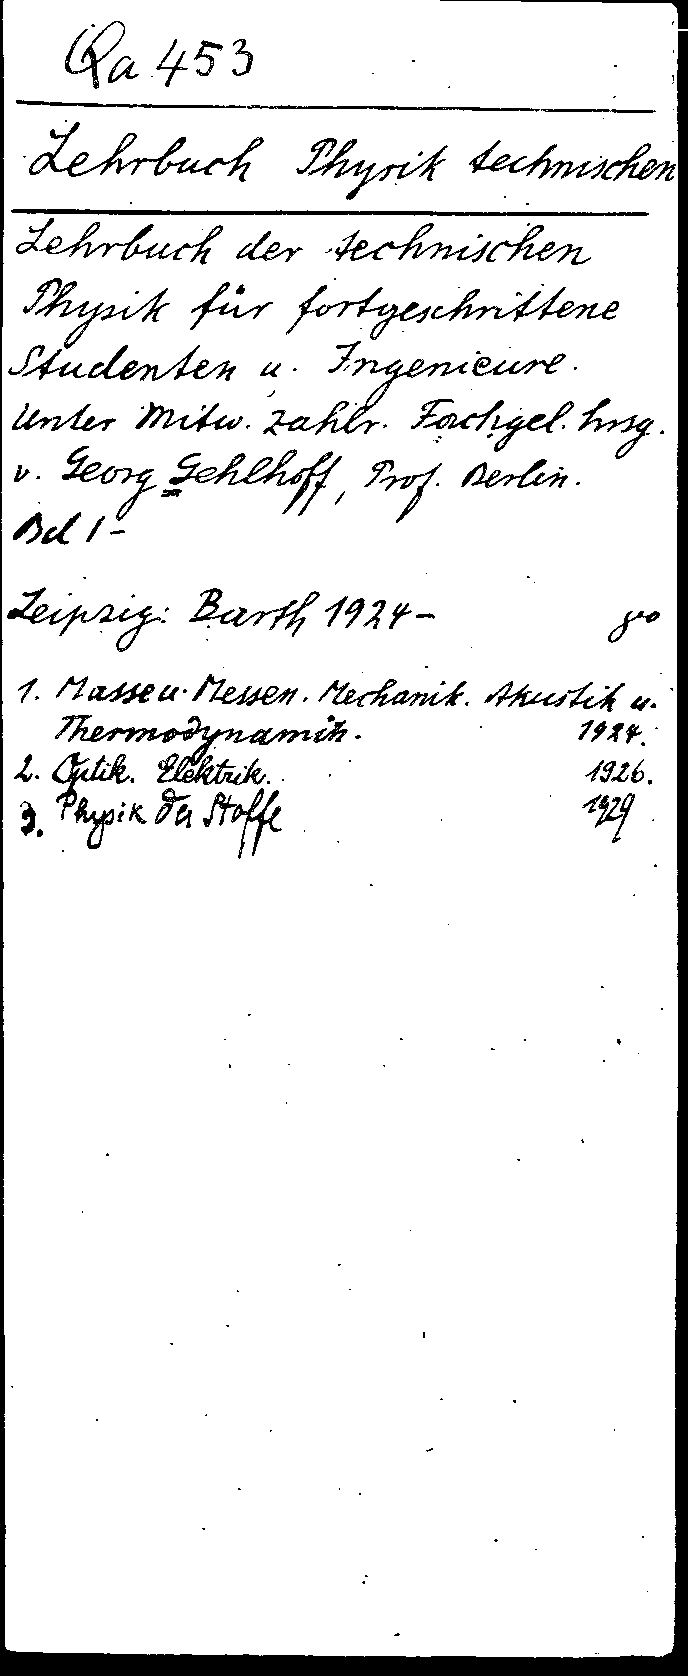 Qa 453
Lehrbuch Physik technischen
Lehrbuch der technischen
Physik für fortgeschrittene
Studenten u. Ingenieure.
Unter Mitw. zahlr. Fachgel. hrsg.
v. Georg Gehlhoff, Prof. Berlin.
Bd 1-
Leipzig: Barth 1924- 8°
1. Masse u. Messen. Mechanik. Akustik u.
Thermodynamik. 1924.
2. Optik. Elektrik. 1926.
3. Physik der Stoffe 1929